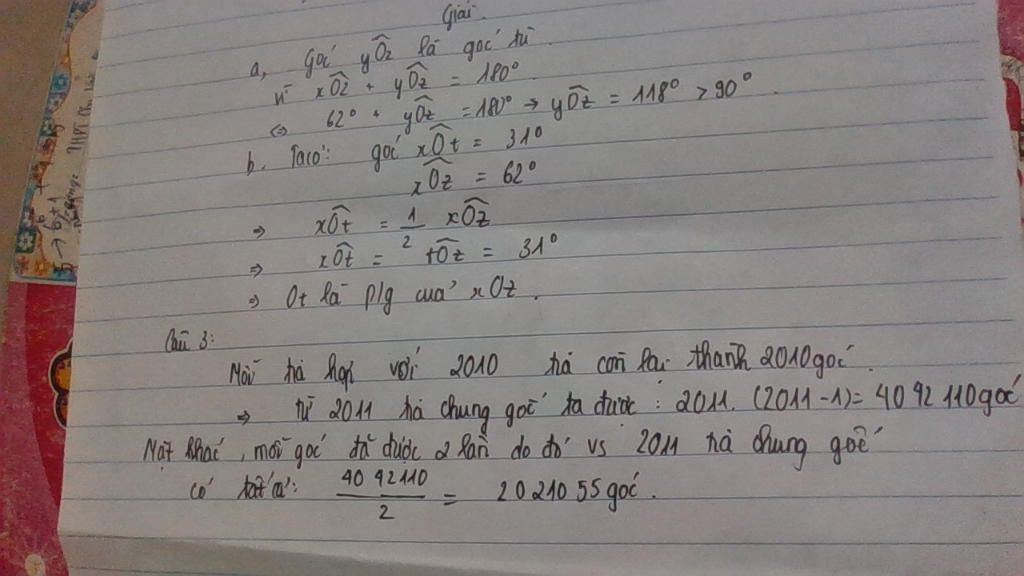 Giải.
a, Góc yOz là góc tù.
vì xOz + yOz = 180°
<=> 62° + yOz = 180° → yOz = 118° > 90°
b. Ta có: góc xOt = 31°
xOz = 62°
=> xOt = 1/2 xOz
=> xOt = tOz = 31°
=> Ot là p/g của xOz.
Câu 3:
Mỗi tia hợp với 2010 tia còn lại thành 2010 góc.
=> từ 2011 tia chung gốc ta được: 2011. (2011-1) = 40 42 110 góc
Mặt khác, mỗi góc đã được 2 lần do đó vs 2011 tia chung gốc
có tất cả: 40 42110 / 2 = 20210 55 góc.